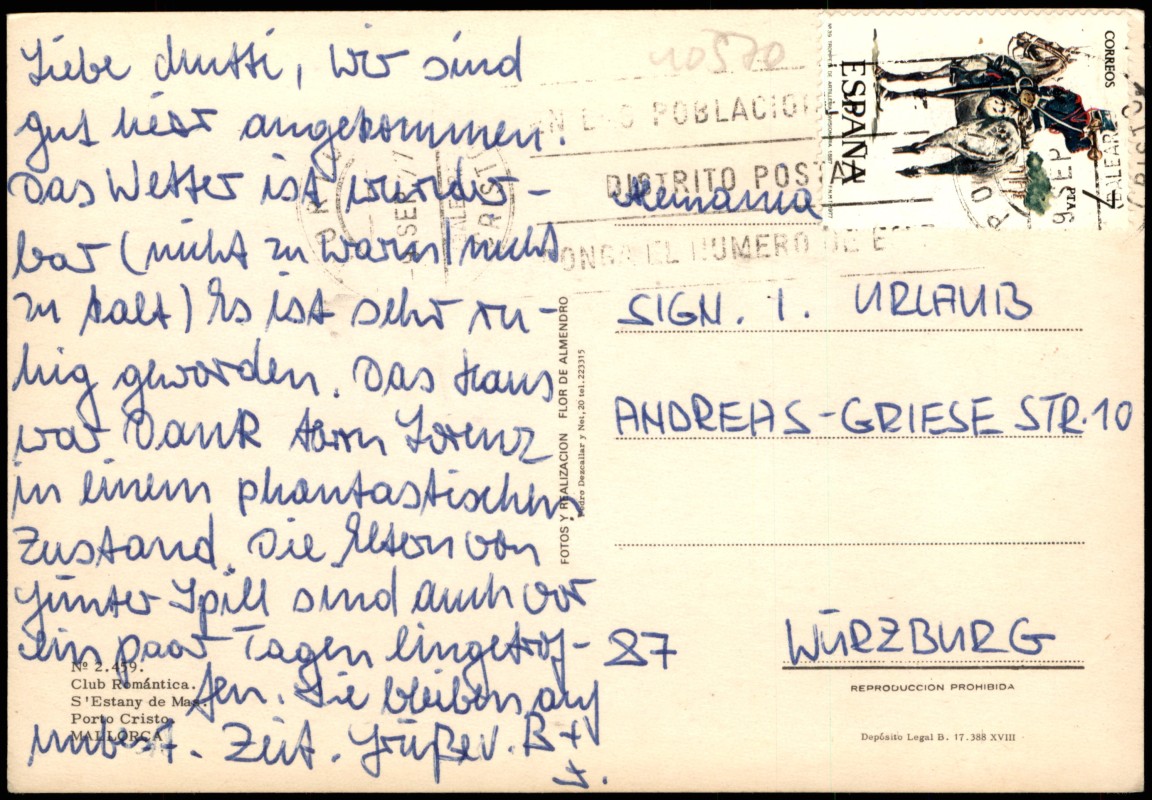 Liebe Mutti, wir sind
gut hier angekommen.
Das Wetter ist wunder-
bar (nicht zu warm/nicht
zu kalt) Es ist sehr ru-
hig geworden. Das Haus
war Dank Herrn Lorenz
in einem phantastischen
Zustand. Die Eltern von
Günter Spill sind auch vor
ein paar Tagen eingetrof-
fen. Sie bleiben auf
unbest. Zeit. Grüße v. B +
Nº 2.459.
Club Romántica.
S'Estany de Mas.
Porto Cristo.
MALLORCA
FOTOS Y REALIZACION FLOR DE ALMENDRO
Pedro Dezcallar y Net, 20 tel. 223315
10570
CORREOS
ESPAÑA
PTA
EN LAS POBLACIO
DISTRITO POSTA
PONGA EL NUMERO DE E
SEP
9 SEP
BALEAR
Alemania
SIGN. I. URLAUB
ANDREAS-GRIESE STR. 10
87 WÜRZBURG
REPRODUCCION PROHIBIDA
Depósito Legal B. 17.388 XVIII